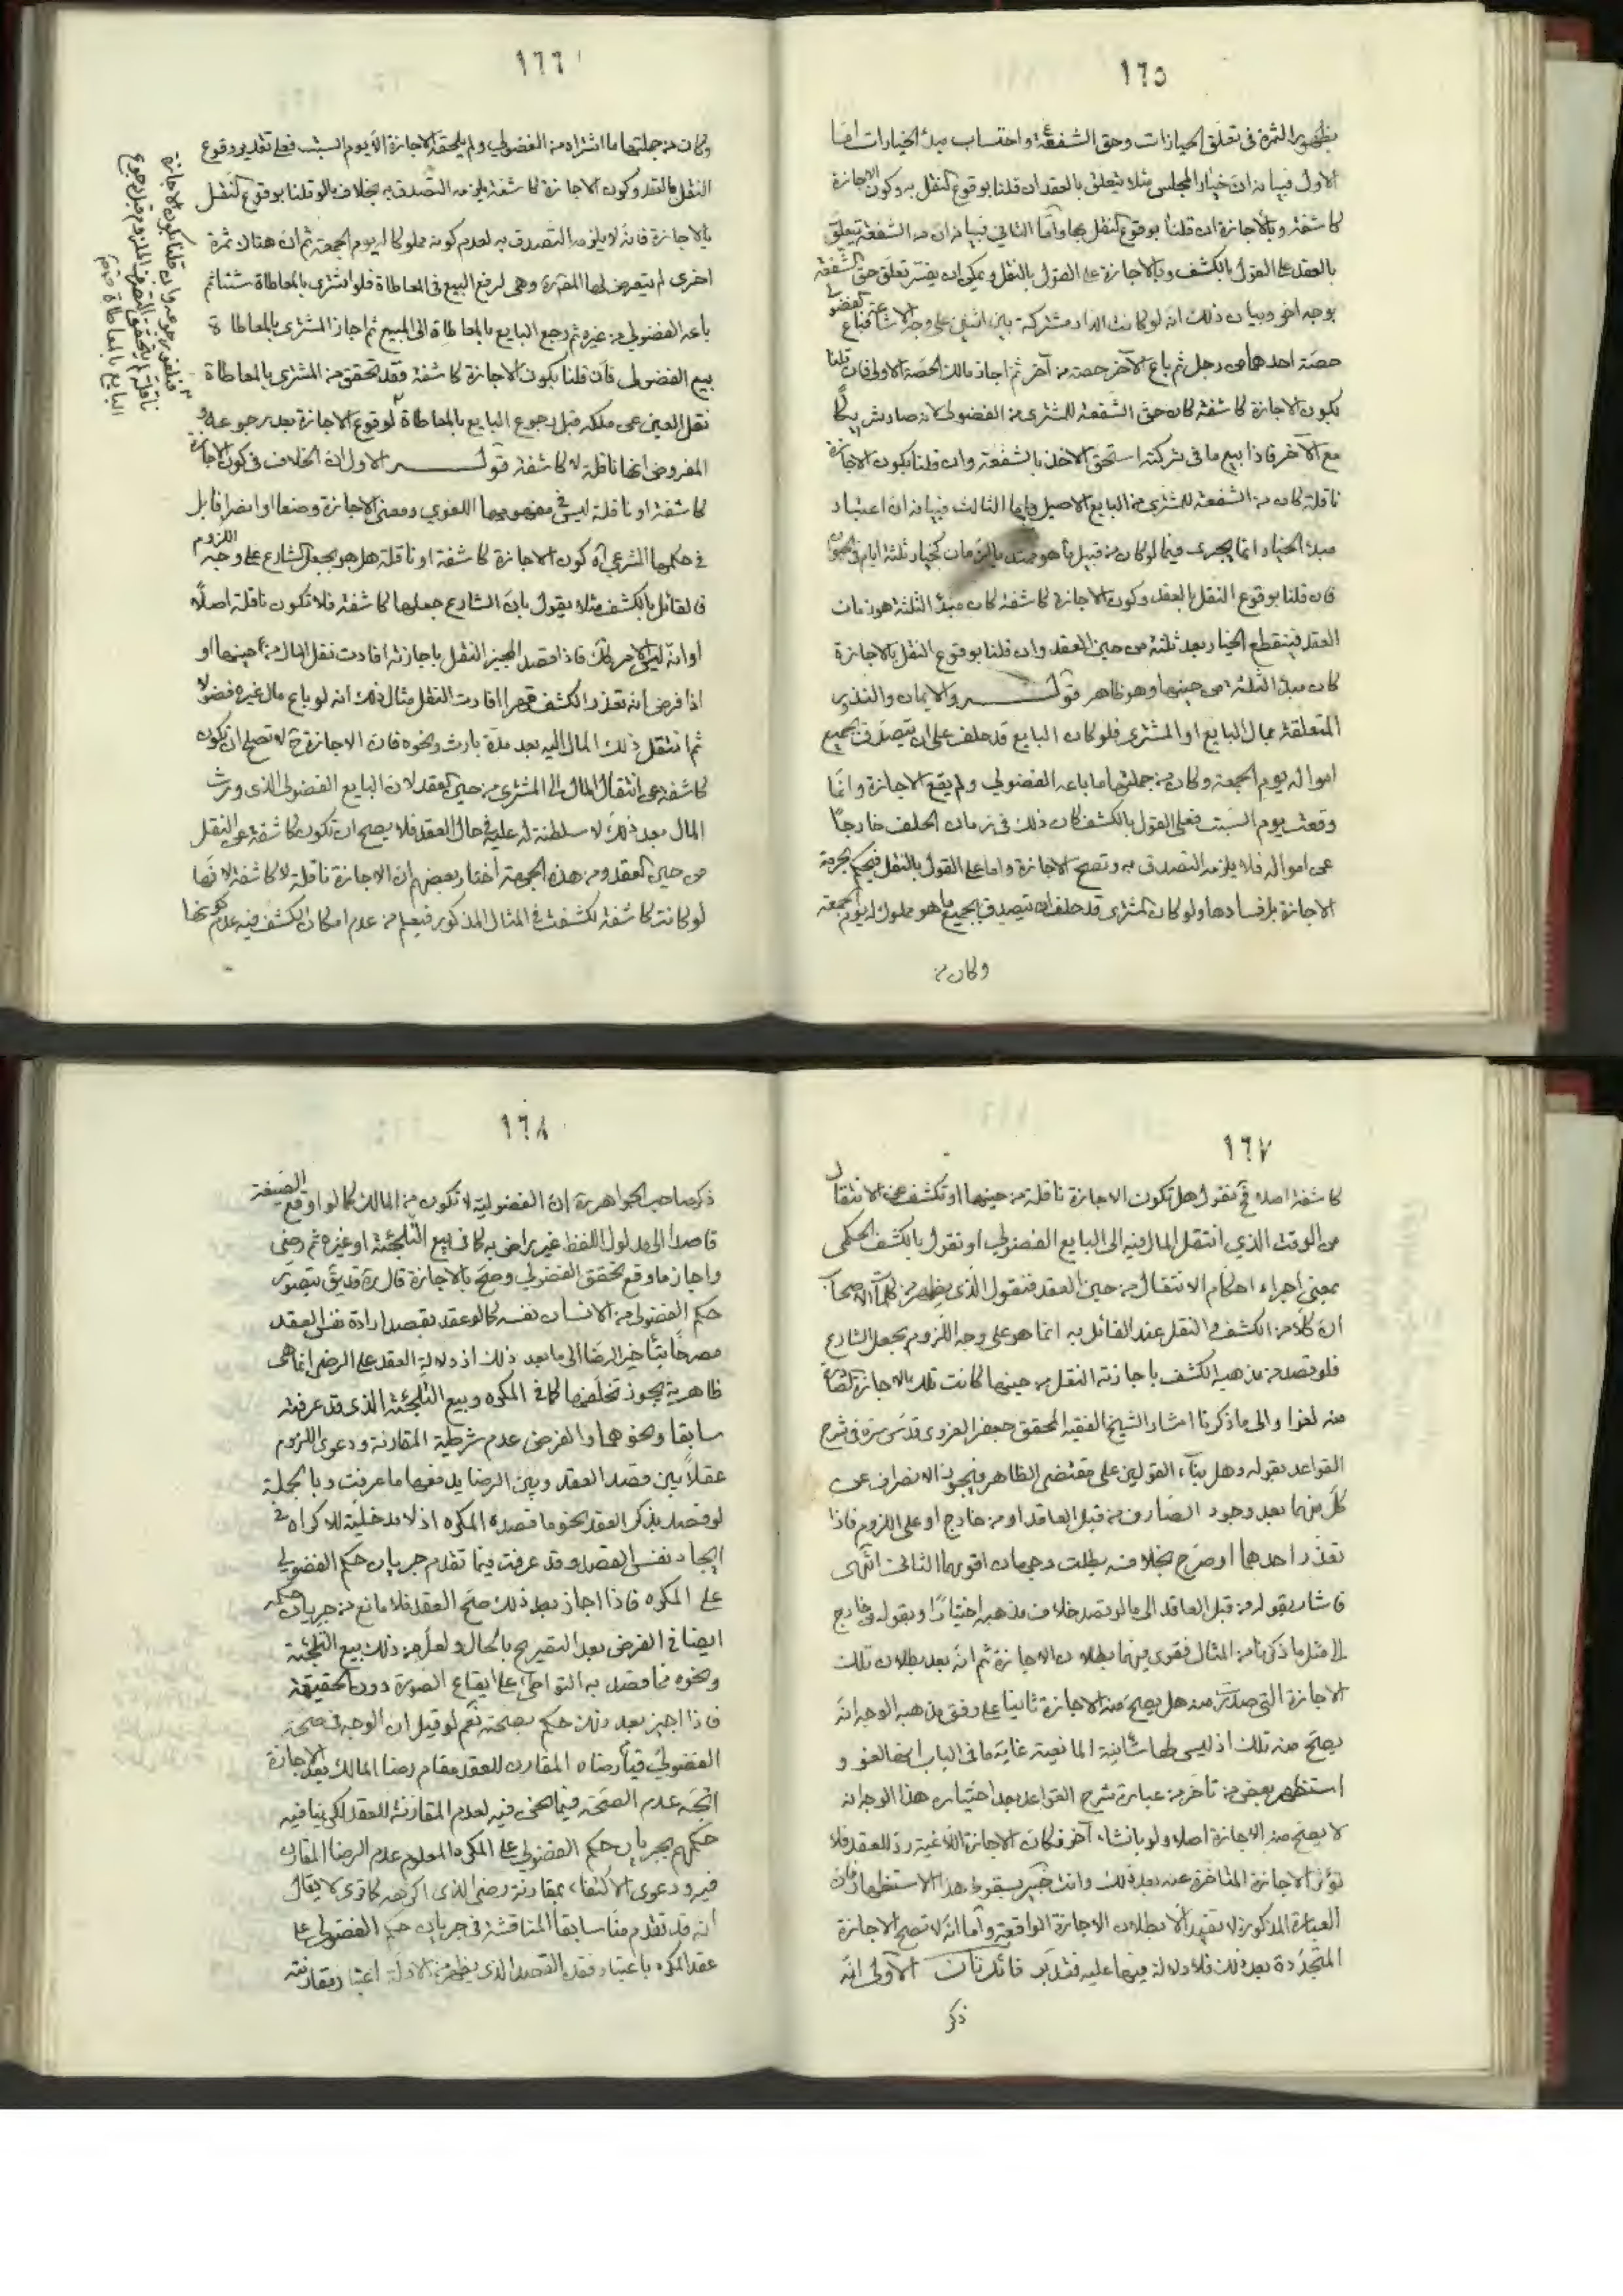 ١٦٥
بظهور الثمرة في تعلق الخيارات وحق الشفعة واحتساب مبدء الخيارات امّا
الاول فبيانه انّ خيار المجلس مثلا يتعلق بالعقد ان قلنا بوقوع النقل به وكون الاجازة
كاشفة وبالاجازة ان قلنا بوقوع النقل بها وامّا الثاني فبيانه ان حق الشفعة يتعلق
بالعقد على القول بالكشف وبالاجازة على القول بالنقل ويمكن ان يفسّر تعلق حق الشفعة
بوجه اخر وبيان ذلك انه لو كانت الدار مشتركة بين اثنين على وجه الاشاعة فباع الفضولي
حصّة احدهما من رجل ثم باع الآخر حصته من آخر ثم اجاز مالك الحصّة الاولى فان قلنا
بكون الاجازة كاشفة كان حق الشفعة للمشتري من الفضولي لانه صار شريكًا
مع الآخر فاذا بيع ما في شركته استحق الاخذ بالشفعة وان قلنا بكون الاجازة
ناقلة كان حق الشفعة للمشتري من البايع الاصيل وامّا الثالث فبيانه ان اعتبار
مبدء الخيار انما يجري فيما لو كان من قبيل ما هو ممتد بالزمان كخيار ثلثة ايام في الحيوان
فان قلنا بوقوع النقل بالعقد وكون الاجازة كاشفة كان مبدء الثلثة هو زمان
العقد فينقطع الخيار بعد ثلثة من حين العقد وان قلنا بوقوع النقل بالاجازة
كان مبدء الثلثة من حينها وهو ظاهر قوله والايمان والنذور
المتعلقة بمال البايع او المشتري فلو كان البايع قد حلف على ان يتصدق بجميع
امواله يوم الجمعة وكان من جملتها ما باعه الفضولي ولم يقع الاجازة وانّما
وقعت يوم السبت فعلى القول بالكشف كان ذلك في زمان الحلف خارجًا
عن امواله فلا يلزمه التصدق به وتصح الاجازة واما على القول بالنقل فيحكم بحرمة
الاجازة بل فسادها ولو كان المشتري قد حلف ان يتصدق بجميع ما هو مملوك له يوم الجمعة
وكان من
١٦٦
وكان من جملتها ما اشتراه من الفضولي ولم يلحقه الاجازة الّا يوم السبت فعلى تقدير وقوع
النقل بالعقد وكون الاجازة كاشفة يلزمه التصدق به بخلاف ما لو قلنا بوقوع النقل
بالاجازة فانّه لا يلزمه التصدق به لعدم كونه مملوكا له يوم الجمعة ثم ان هنالا ثمرة
اخرى لم يتعرض لها المقرره وهي لرفع البيع في المعاطاة فلو اشترى بالمعاطاة شيئا ثم
باعه الفضولي من غيره ثم رجع البايع بالمعاطاة الى المبيع ثم اجاز المشتري بالمعاطاة
بيع الفضولي فان قلنا بكون الاجازة كاشفة فقد تحقق من المشتري بالمعاطاة
نقل العين عن ملكه قبل رجوع البايع بالمعاطاة لوقوع الاجازة بعد رجوعه و
المفروض انها ناقلة لا كاشفة قوله الاول ان الخلاف في كون الاجازة
كاشفة او ناقلة ليس في مفهومها اللغوي ومعنى الاجازة وضعا او انصرافا بل
في حكمها الشرعي اه كون الاجازة كاشفة او ناقلة هل هو بجعل الشارع على وجه اللزوم
فالقائل بالكشف مثلا يقول بان الشارع جعلها كاشفة فلا تكون ناقلة اصلًا
او انه ليس الامر كذلك فاذا قصد المجيز النقل باجازته افادت نقل المال من حينها او
اذا فرض انه تعذر الكشف قهرا افادت النقل مثال ذلك انه لو باع مال غيره فضولا
ثم انتقل ذلك المال اليه بعد مدة بارث ونحوه فان الاجازة ح لا تصح ان تكون
كاشفة عن انتقال المال الى المشتري من حين العقد لان البايع الفضولي الذي ورث
المال بعد ذلك لا سلطنة له عليه في حال العقد فلا يصح ان تكون كاشفة عن النقل
من حين العقد ومن هذه الجهة اختار بعضهم ان الاجازة ناقلة لا كاشفة لانّها
لو كانت كاشفة لكشفت في المثال المذكور فيعلم من عدم امكان الكشف فيه عدم كونها
فيلغو رجوعه وان قلنا بكون الاجازة
ناقلة لم يتحقق التصرف الملزم قبل رجوع
البايع بالمعاطاة
١٦٧
كاشفة اصلا فح نقول هل تكون الاجازة ناقلة من حينها او تكشف عن الانتقال
من الوقت الذي انتقل المال فيه الى البايع الفضولي او نقول بالكشف الحكمي
بمعنى اجراء احكام الانتقال من حين العقد فنقول الذي يظهر من كلمات الاصحاب
ان كلًا من الكشف والنقل عند القائل به انما هو على وجه اللزوم بجعل الشارع
فلو قصد من مذهبه الكشف باجازته النقل من حينها كانت تلك الاجازة الصادرة
منه لغوا والى ما ذكرنا اشار الشيخ الفقيه المحقق جعفر الغروي قدس سره في شرح
القواعد بقوله وهل بناء القولين على مقتضى الظاهر فيجوز الانصراف عن
كل منهما بعد وجود الصارف من قبل العاقد او من خارج او على اللزوم فاذا
تعذر احدهما او صرّح بخلافه بطلت وجهان اقويهما الثاني انتهى
فاشار بقوله من قبل العاقد الى ما لو قصد خلاف مذهبه اختيارًا وبقوله من خارج
الى مثل ما ذكرنا من المثال فقوى فيهما بطلان الاجازة ثم انه بعد بطلان تلك
الاجازة التي صدرت منه هل يصح منه الاجازة ثانيا على وفق مذهبه الوجه انّه
يصح منه تلك اذ ليس لها شائبة المانعية غاية ما في الباب انها لغو و
استظهر بعض من تأخر من عبارة شرح القواعد بعد اختياره هذا الوجه انه
لا يصح منه الاجازة اصلا ولو بانشاء آخر فكان الاجازة اللاغية ردّ للعقد فلا
تؤثر الاجازة المتاخرة عنه بعد ذلك وانت خبير بسقوط هذا الاستظهار فان
العبارة المذكورة لا تفيد الّا بطلان الاجازة الواقعة وامّا انّه لا تصح الاجازة
المتجدّدة بعد ذلك فلا دلالة فيها عليه فتدبّر فائدتان الاولى انّه
ذكر
١٦٨
ذكر صاحب الجواهر ره ان الفضولية لا تكون من المالك كما لو اوقع الصيغة
قاصدًا الى مدلول اللفظ غير راض به كما في بيع التلجئة او غيره ثم رضي
واجاز ما وقع تحقق الفضولي وصحّ بالاجازة قال ره قد يق بتصوّر
حكم الفضولي من الانسان نفسه كما لو عقد بقصد ارادة نفس العقد
مصرحًا بتأخير الرضا الى ما بعد ذلك اذ دلالة العقد على الرضى انما هى
ظاهرية يجوز تخلفها كما في المكره وبيع التلجئة الذي قد عرفته
سابقا ونحوهما والفرض عدم شرطية المقارنة ودعوى اللزوم
عقلًا بين قصد العقد وبين الرضا يدفعها ما عرفت وبالجملة
لو قصد بذكر العقد نحو ما قصده المكره اذ لا مدخلية للاكراه في
ايجاد نفس القصد وقد عرفت فيما تقدم جريان حكم الفضولي
على المكره فاذا اجاز بعد ذلك صحّ العقد فلا مانع من جريان حكمه
ايضا في الفرض بعد التصريح بالحال ولعل من ذلك بيع التلجئة
ونحوه مما قصد به التواطى على ايقاع الصورة دون الحقيقة
فاذا اجيز بعد ذلك حكم بصحته نعم لو قيل ان الوجه في صحة
الفضولي قيام رضاه المقارن للعقد مقام رضا المالك بعد الاجازة
اتجه عدم الصحّة فيما نحن فيه لعدم المقارنة للعقد لكن ينافيه
حكمهم بجريان حكم الفضولي على المكره المعلوم عدم الرضا المقارن
فيه ودعوى الاكتفاء بمقارنة رضى الذي اكرهه كما ترى لا يقال
انه قد تقدم منّا سابقا المناقشة في جريان حكم الفضولي على
عقد المكره باعتبار فقد القصد الذي يظهر من الادلة اعتبار مقارنته